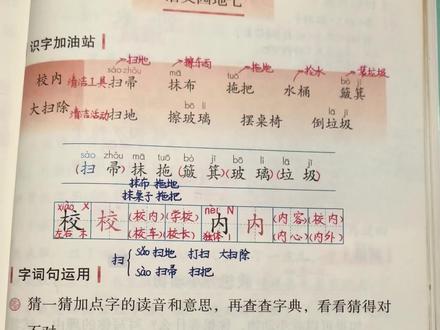 识字加油站
扫地 擦东西 拖地 拎水 装垃圾
sào zhou mā tuō bò ji
校内 清洁工具 扫帚 抹布 拖把 水桶 簸箕
bō li lā jī
大扫除 清洁活动 扫地 擦玻璃 摆桌椅 倒垃圾
sào zhou mā tuō bò ji bō li lā jī
(扫 帚) 抹 拖 (簸 箕) (玻 璃) (垃 圾)
抹布 拖地
抹桌子 拖把
xiào X nèi N
校 校 (校内) (学校) 内 内 (内容) (校内)
左右 木 (校车) (校长) 独体 (内心) (内外)
sǎo 扫地 打扫 大扫除
扫
sào 扫帚 扫把
字词句运用
猜一猜加点字的读音和意思，再查查字典，看看猜得对